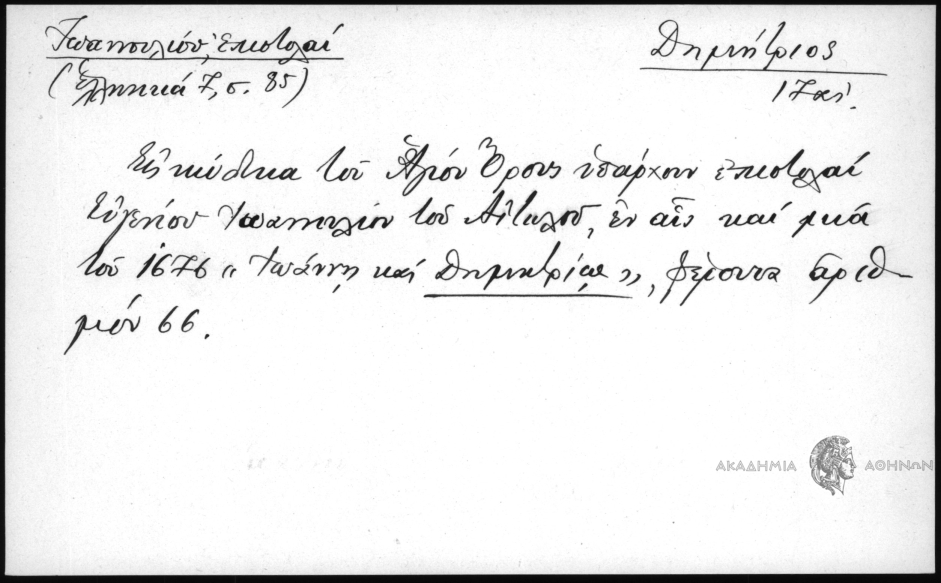 Ἰωαννουλίου, ἐπιστολαί
(Ἑλληνικά 7, σ. 85)
Δημήτριος
17 αἰ.
Εἰς κώδικα τοῦ Ἁγίου Ὄρους ὑπάρχουν ἐπιστολαί
Εὐγενίου Ἰωαννουλίου τοῦ Αἰτωλοῦ, ἐν αἷς καί μιά
τοῦ 1676 « Ἰωάννῃ καί Δημητρίῳ », φέρουσα ἀριθ-
μόν 66.
ΑΚΑΔΗΜΙΑ ΑΘΗΝΩΝ